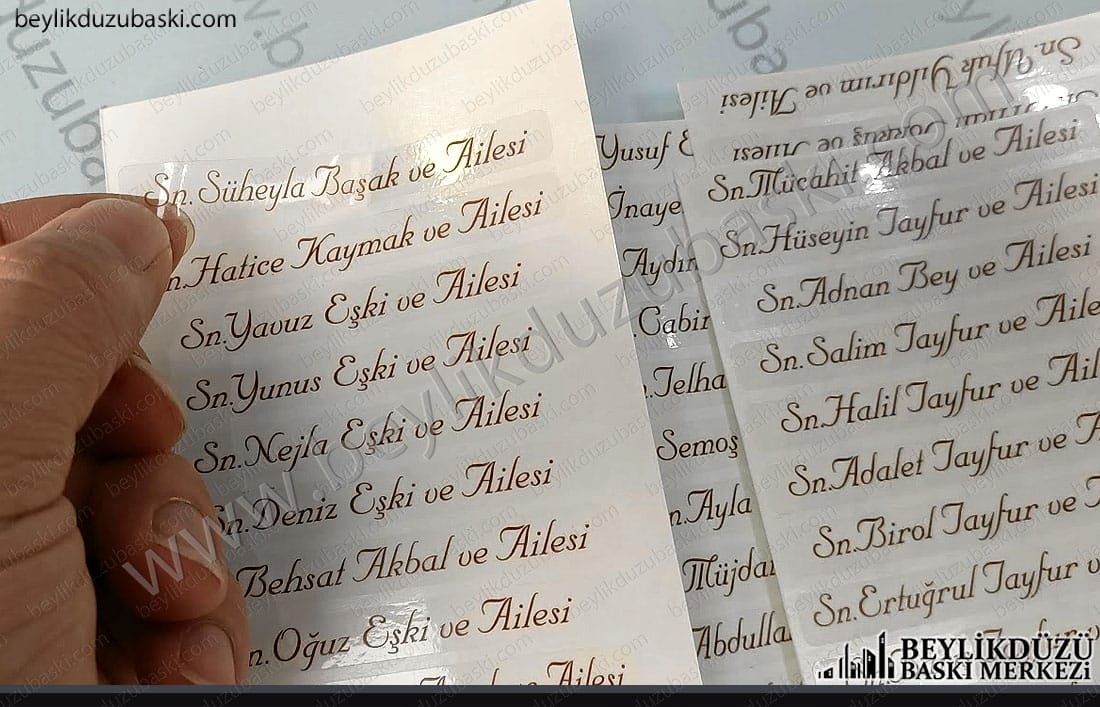 beylikduzubaski.com
Sn. Süheyla Başak ve Ailesi
Sn.Hatice Kaymak ve Ailesi
Sn.Yavuz Eşki ve Ailesi
Sn.Yunus Eşki ve Ailesi
Sn.Nejla Eşki ve Ailesi
Sn.Deniz Eşki ve Ailesi
Behsat Akbal ve Ailesi
Sn.Oğuz Eşki ve Ailesi
ve Ailesi
Yusuf
İnaye
Aydın
.Cabir
.Telha
Semoş
n.Ayla
Müjdat
Abdulla
Sn. Ufuk Yıldırım ve Ailesi
ve Ailesi
Sn.Mücahit Akbal ve Ailesi
Sn.Hüseyin Tayfur ve Ailesi
Sn.Adnan Bey ve Ailesi
Sn.Salim Tayfur ve Aile
Sn.Halil Tayfur ve Ail
Sn.Adalet Tayfur ve A
Sn.Birol Tayfur ve
Sn.Ertuğrul Tayfur v
www.beylikduzubaski.com
BEYLİKDÜZÜ
BASKI MERKEZİ